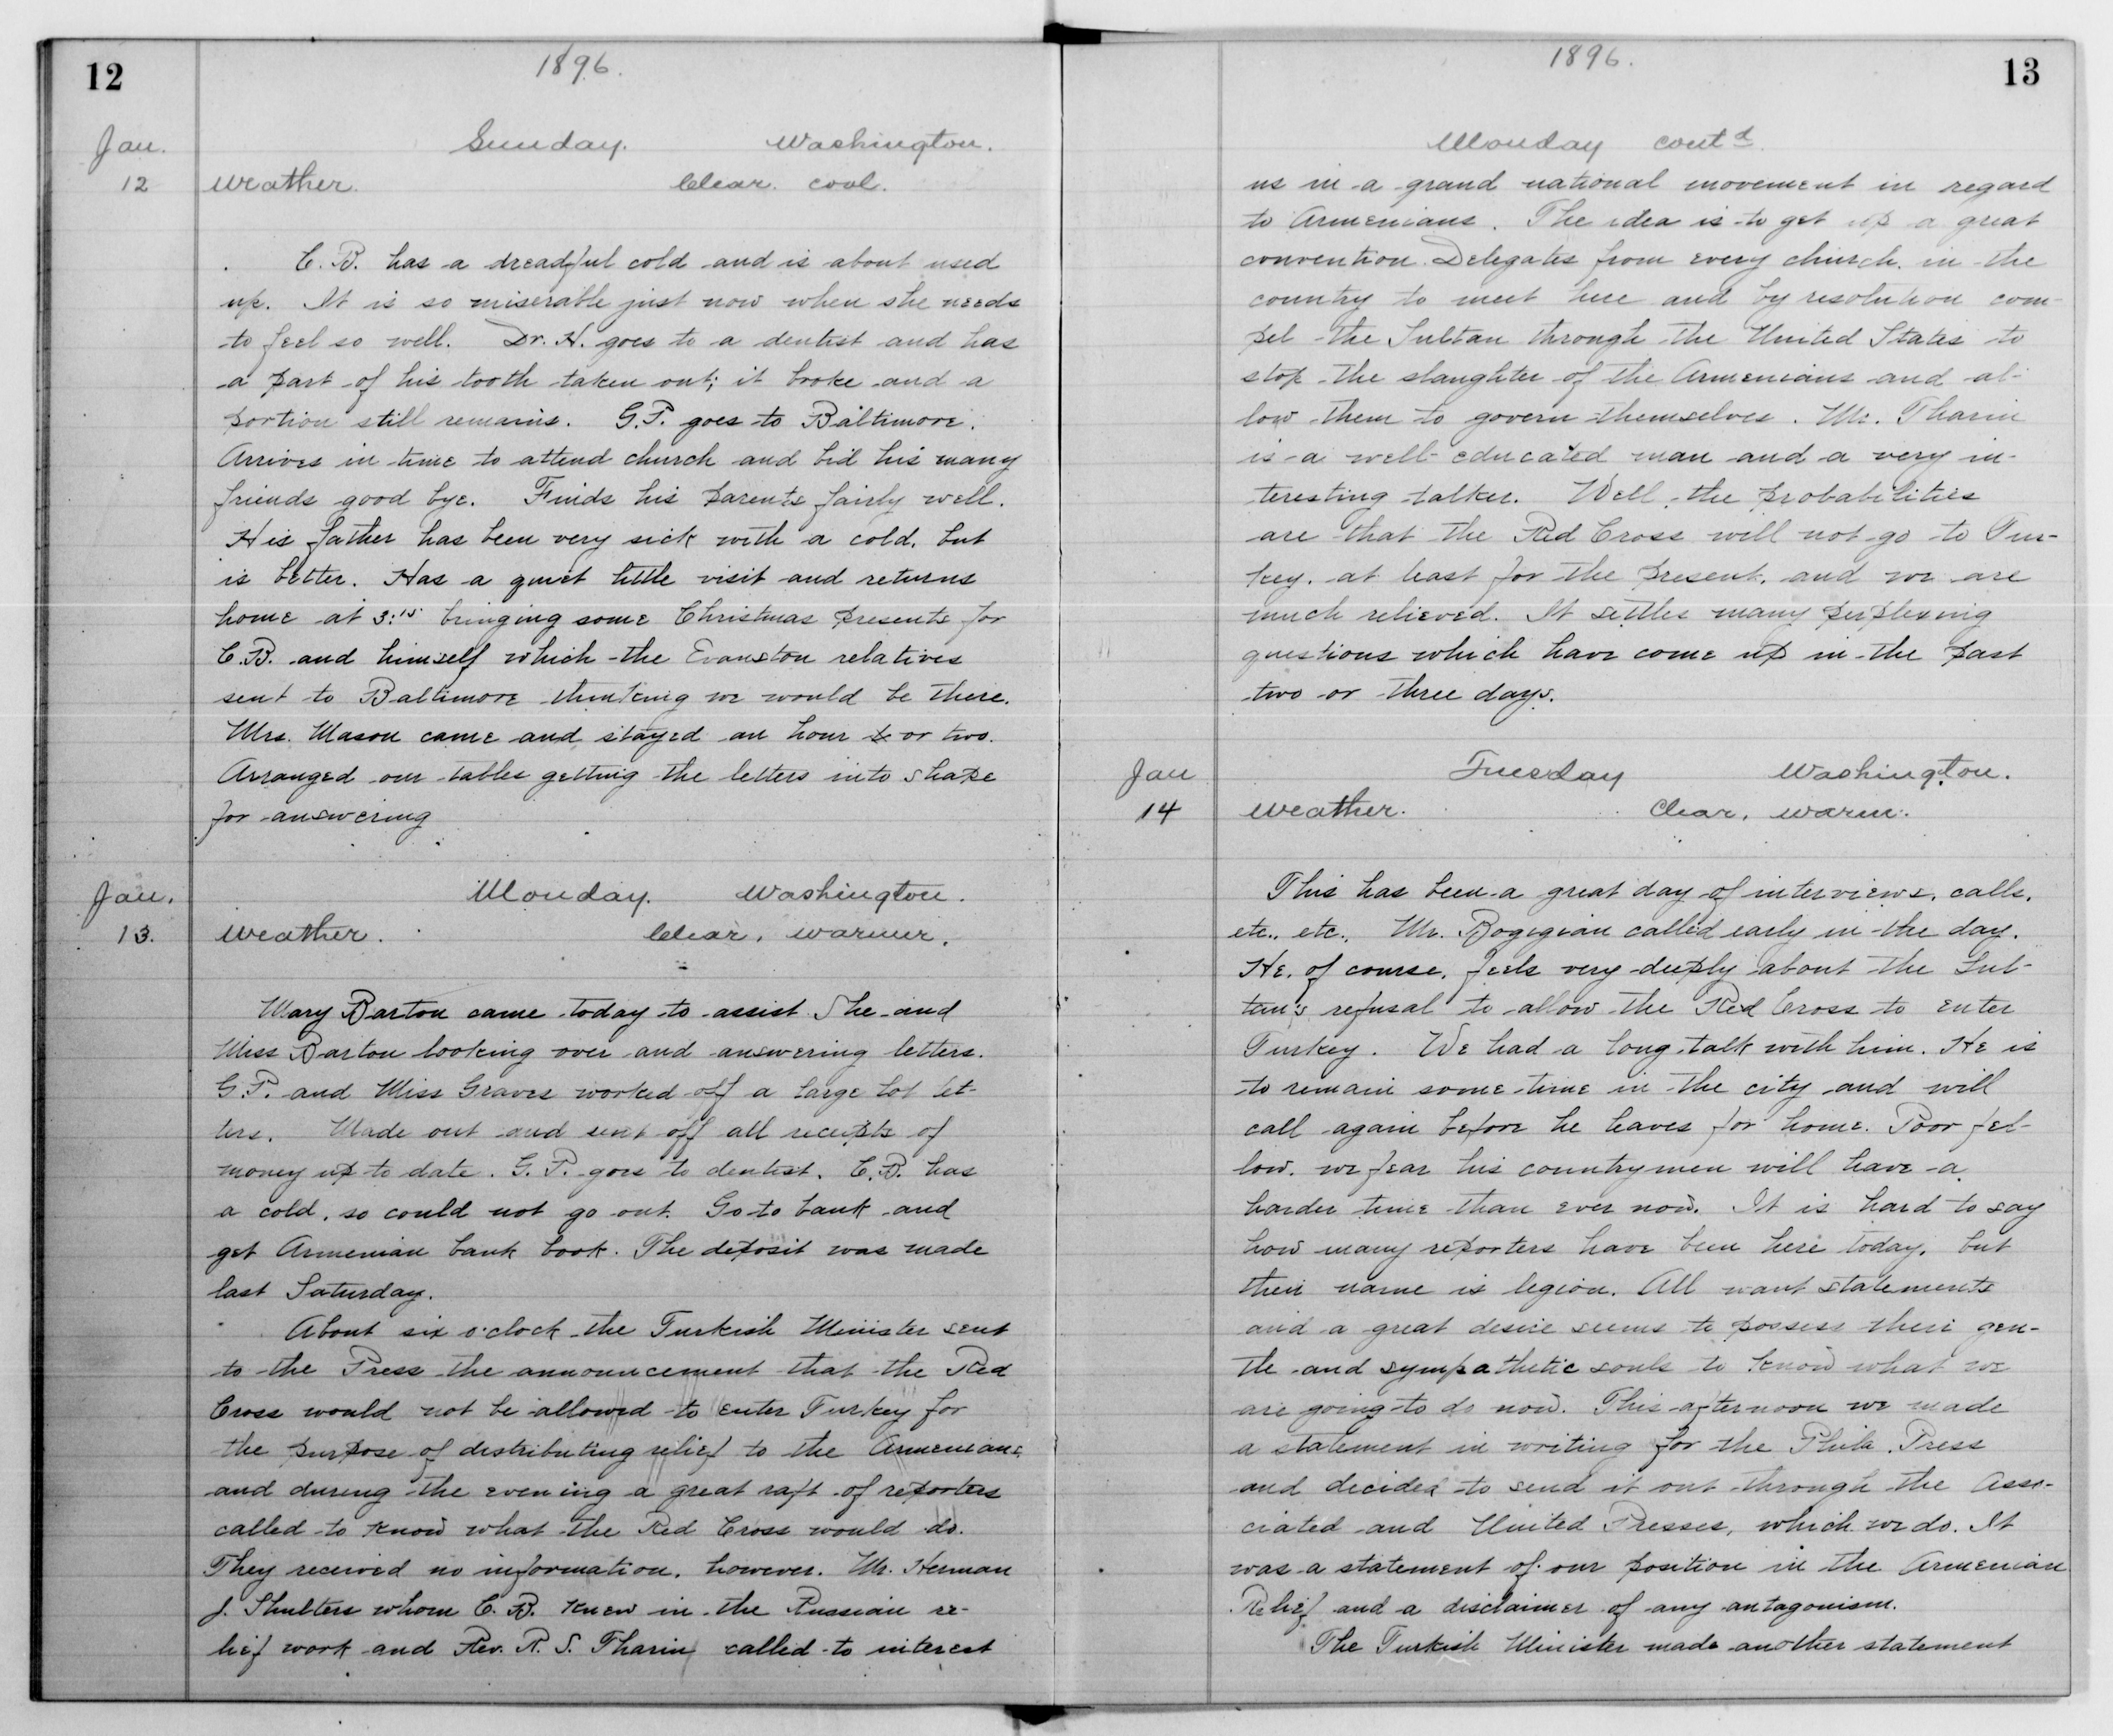 12
1896.
Jan. Sunday. Washington.
12 Weather. Clear. cool.
C. B. has a dreadful cold and is about used
up. It is so miserable just now when she needs
to feel so well. Dr. H. goes to a dentist and has
a part of his tooth taken out; it broke and a
portion still remains. G. P. goes to Baltimore.
Arrives in time to attend church and bid his many
friends good bye. Finds his parents fairly well.
His father has been very sick with a cold, but
is better. Has a quiet little visit and returns
home at 3:15 bringing some Christmas presents for
C. B. and himself which the Evanston relatives
sent to Baltimore thinking we would be there.
Mrs. Mason came and stayed an hour or two.
Arranged our tables getting the letters into shape
for answering
Jan. Monday. Washington.
13. Weather. Clear, warmer.
Mary Barton came today to assist She and
Miss Barton looking over and answering letters.
G. P. and Miss Graves worked off a large lot let-
ters. Made out and sent off all receipts of
money up to date. G. P. goes to dentist. C. B. has
a cold, so could not go out. Go to bank and
get Armenian bank book. The deposit was made
last Saturday.
About six o'clock the Turkish Minister sent
to the Press the announcement that the Red
Cross would not be allowed to enter Turkey for
the purpose of distributing relief to the Armenians,
and during the evening a great raft of reporters
called to know what the Red Cross would do.
They received no information, however. Mr. Herman
J. Shulters whom C. B. knew in the Russian re-
lief work and Rev. R. S. Tharin called to interest
1896.
13
Monday contd.
us in a grand national movement in regard
to Armenians. The idea is to get up a great
convention. Delegates from every church in the
country to meet here and by resolution com-
pel the Sultan through the United States to
stop the slaughter of the Armenians and al-
low them to govern themselves. Mr. Tharin
is a well-educated man and a very in-
teresting talker. Well, the probabilities
are that the Red Cross will not go to Tur-
key, at least for the present, and we are
much relieved. It settles many perplexing
questions which have come up in the past
two or three days.
Jan Tuesday Washington.
14 Weather. Clear, warm.
This has been a great day of interviews, calls,
etc., etc., Mr. Bogigian called early in the day.
He, of course, feels very deeply about the Sul-
tan's refusal to allow the Red Cross to enter
Turkey. We had a long talk with him. He is
to remain some time in the city and will
call again before he leaves for home. Poor fel-
low, we fear his countrymen will have a
harder time than ever now. It is hard to say
how many reporters have been here today, but
their name is legion. All want statements
and a great desire seems to possess their gen-
tle and sympathetic souls to know what we
are going to do now. This afternoon we made
a statement in writing for the Phila. Press
and decided to send it out through the Asso-
ciated and United Presses, which we do. It
was a statement of our position in the Armenian
Relief and a disclaimer of any antagonism.
The Turkish Minister made another statement